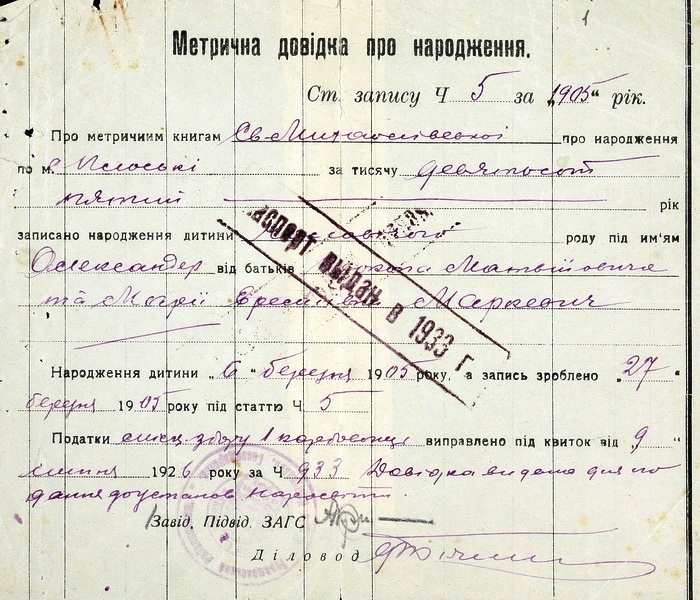 1
Метрична довідка про народження.
Ст. запису Ч 5 за „1905“ рік.
Про метричним книгам Св-Михайлівської про народження
по м. с Плоські за тисячу девятьсот
пятий рік
записано народження дитини роду під им'ям
Олександер від батьків Матвійовича
та Марії Маркевич
Паспорт выдан в 1933 г.
Народження дитини „6“ березня 1905 року, а запись зроблено „27“
березня 1905 року під статтю Ч 5
Податки місц. збору 1 карбованець виправлено під квиток від 9
липня 1926 року за Ч 933 Довідка видана для по
дання до установ
Завід. Підвід. ЗАГС
Діловод